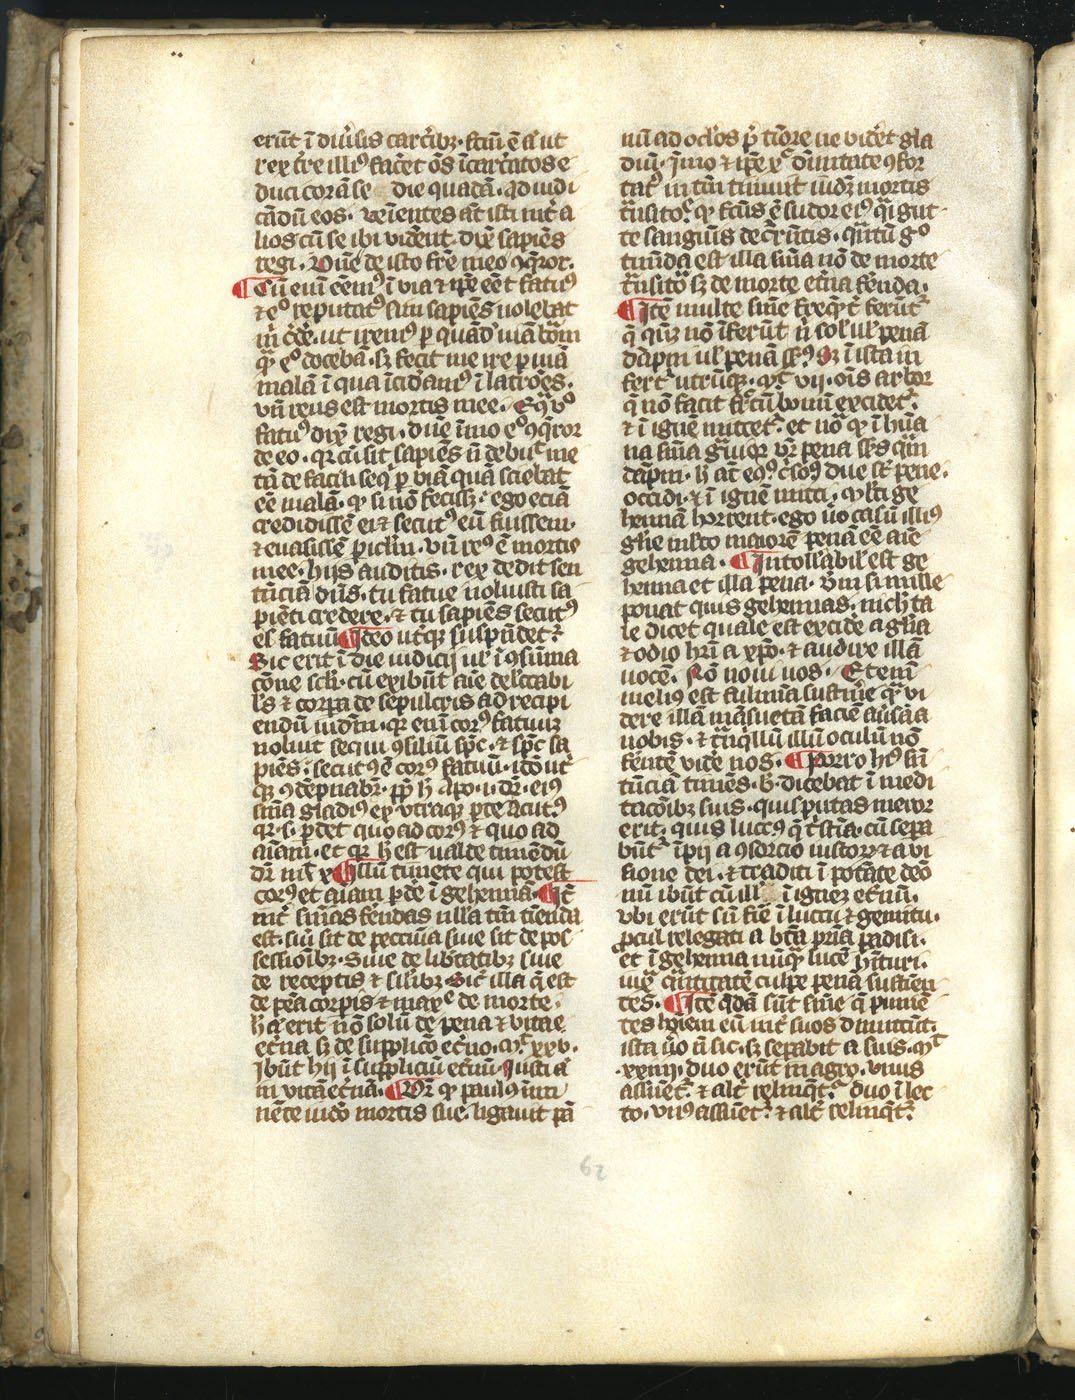 erūt ī diũsis carc̃ibꝫ · fctm̄ ē aūt ut
rex t̃re illiꝰ fac̃et oēs īcarc̃atos e
duci corā se die quadā · ad iudi
cādū eos · venientes at̄ isti int̃ a
lios cū se ibi vidēnt · dixͭ sapiēs
regi · Dn̄e de isto fr̄e meo ꝯq̃ror ·
¶ Cū enī eēmꝰ ī via ⁊ ip̄e eēt fatuꝰ
⁊ e͡o reputatꝰ sū sapiēs nolebat
m̄ c̃de͡e · ut irem̄ꝰ ꝑ quādā uiā bonā
q̃ e͡o doceba · sꝫ fecit me ire ꝑ uiā
malā ī qua īcidamꝰ ī latrões ·
vn̄ reus est mortis mee · Eq̃ ỽo
fatuꝰ dixͭ regi · dn̄e īmo e͡o ꝯq̃ror
de eo · qꝛ cū sit sapiēs n̄ debuͭ me
tū de facili seq̇ ꝑ viā quā sciebat
eē malā · qꝛ si nō fecissꝫ · ego eciā
credidissē ei ⁊ secutꝰ eū fuissem ·
⁊ euasissē ꝑiclm̄ · vn̄ reꝰ ē mortis
mee · hijs auditis · rex dedit sen
tēciā dn̄s · tu fatue noluisti sa
piēti credere · ⁊ tu sapiēs secutꝰ
es fatuū ¶ Ideo ut̃qꝫ suspēdet᷑
Sic erit ī die iudicij ul̓ ī ꝯsūma
cōne scl̓i · cū exibūt aīe de
⁊ corꝑa de sepulcris ad recipi
endū iudm̄ · qꝛ enī corꝰ fatuū
noluit sequi ꝯsiliū sp̄c · ⁊ sp̄c sa
piēs · secutꝰ ē corꝰ fatuū · iō ut̃
qꝫ ꝯdēpnabr̃ · ꝓp̄ h̄ Apo · ij · dr̄ · eiꝰ
sn̄ia gladiꝰ ex vtraqꝫ ꝑte acutꝰ
qꝛ · s · ꝑdet quo ad corꝰ ⁊ quo ad
aīam · et qꝛ h̄ est ualde timēdū
dr̄ mͭ x ¶ Illū timete qui potest
corꝰ et aīam ꝑde ī gehenna · ¶ Itē
int̃ sn̄ias fēndas nulla tm̄ tiēnda
est · siū sit de peccīna siue sit de pos
sessiōibꝫ · Siue de libtatibꝫ siue
de receptis ⁊ silībꝫ · Sic̃ illa q̄ est
de pēa corpis ⁊ maxe de morte ·
h̄ aͭ erit nō solū de pena ⁊ vitae
et̃na sꝫ de suplico et̃no · Mͭ xxv ·
Ibūt hij ī supliciū et̃nū · Iusti aͭ
in vitā et̃nā · ¶ Dr̄ qꝛ paulꝰ īmi
nēte iuico mortis sue · ligauit pā
nū ad oclos p̄ tīore ne vid̃et gla
diū · Imo ⁊ ip̄e xͨ diuitate ꝯfor
tatꝰ in tm̄ timuit iudꝫ mortis
t̃nsitoꝰ qꝛ fctūs ē sudor eiꝰ q̄i gut
te sanguīs decr̄rētis · q̃tū g͡o
timēda est illa sn̄ia nō de morte
t̃nsitoͣ sꝫ de morte et̃na fēnda ·
¶ Itē multe sn̄ie freqͭ ferūt᷑
q̄ ꝗꝫ nō īferūt n̄ sol̓ ul̓ penā
dāpni ul̓ penā sn̄sꝰ Sꝫ ista in
fert utrūqꝫ · Mͭ vij · oīs arbor
q̄ nō facit fr̄ctū bonū excidet᷑
⁊ ī ignē mittet᷑ · et nō qꝛ ī hūa
na sn̄ia g̃uiꝰ vr̄ pena sn̄sꝰ q̃m
dāpni · h̄ at̄ eqꝰ cͥsoꝰ due st̄ pene ·
occidi · ⁊ ī ignē mitti · Ml̓ti ge
hennā horrent · ego ṽo casū illiꝰ
gl̓ie ml̓to maiorē penā eē aīe
gehenna · ¶ Intollabil̓ est ge
henna et illa pena · Vn̄ si mille
ponat quis gehennas · nich̓ ta
le dicet quale est excide a gl̓ia
⁊ odio hr̄i a xp̄o · ⁊ audire illā
uocē · Nō noui uos · Etenī
melius est fulmīa sustiñe q̃ vi
dere illā māsuetā faciē aũsā a
nobis · ⁊ t̃nq̓llū illū oculū nō
ferēte vide nos · ¶ Porro hꝰ sn̄
tūciā timēs · b̄ · dicebat ī medi
tacōibꝫ suis · quis putas meror
erit · quis luctꝰ q̄ t̃stīa · cū sepa
būt᷑ īpij a ꝯsorcio iustoꝝ ⁊ a vi
sione dei · ⁊ traditi ī potāte deo
nū ibūt cū ill̓ ī ignē et̃nū ·
vbi erūt sn̄ fīe ī luctu ⁊ gemitu ·
ꝓcul relegati a bt̄a pr̄ia ꝑadisi ·
et ī gehenna nūq̃ lucē h̄ituri ·
iux̃ q̃ntitatē culpe penā sustien
tes · ¶ Itē q̇dā sūt sn̄ie q̄ punie
tes hoīem eū int̃ suos dimittūt
ista ṽo n̄ sic · sꝫ sepabit a suis · Mͭ
· xxiiij · duo erūt in agro · vnus
assūet᷑ ⁊ alt̃ relinq̄t᷑ duo ī lec
to · vnꝰ assūet᷑ ⁊ alt̃ relinq̄t᷑
62